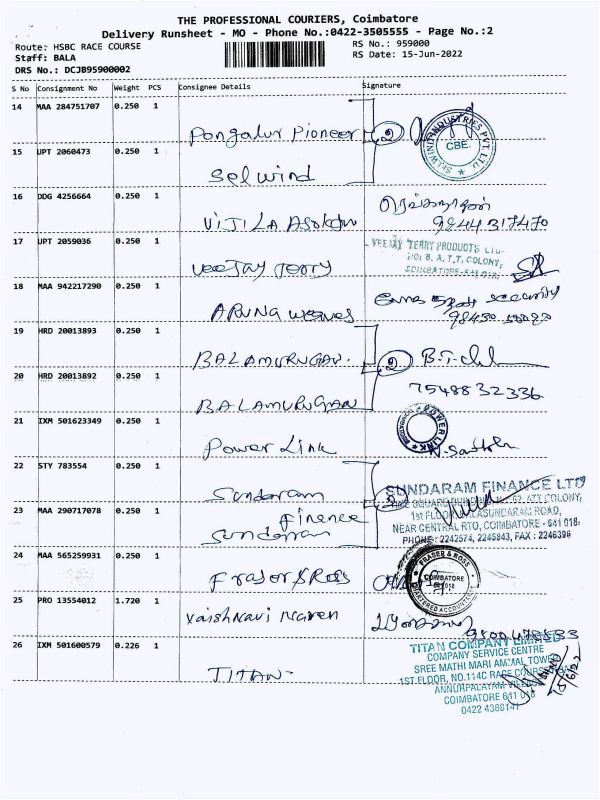 THE PROFESSIONAL COURIERS, Coimbatore
Delivery Runsheet - MO - Phone No.:0422-3505555 - Page No.:2
Route: HSBC RACE COURSE RS No.: 959000
Staff: BALA RS Date: 15-Jun-2022
DRS No.: DCJB95900002
S No Consignment No Weight PCS Consignee Details Signature
14 MAA 284751707 0.250 1
Pongalur Pioneer 2
SELWIND INDUSTRIES PVT. LTD
CBE.
15 UPT 2060473 0.250 1
Selwind
16 DDG 4256664 0.250 1
VIJILA Asokan
98444 317470
17 UPT 2059036 0.250 1
VEEJAY Terry
VEEJAY TERRY PRODUCTS LTD
NO: 8, A.T.T. COLONY,
COIMBATORE-641 018
18 MAA 942217290 0.250 1
ARUNA weaves
19 HRD 20013893 0.250 1
BALAMURUGAN. 2
20 HRD 20013892 0.250 1
7548832336
BALAMURUGAN
21 IXM 501623349 0.250 1
Power Link
POWER LINK
22 STY 783554 0.250 1
Sundaram
Finance
SUNDARAM FINANCE LTD
COLONY,
1st FLOOR, ROAD,
NEAR CENTRAL RTO, COIMBATORE - 641 018.
PHONE : 2242574, 2245843, FAX : 2246396
23 MAA 290717078 0.250 1
Sundaram
24 MAA 565259931 0.250 1
Fraser & Ross
FRASER & ROSS
COIMBATORE
CHARTERED ACCOUNTANTS
25 PRO 13554012 1.720 1
Vaishnavi Naren
26 IXM 501600579 0.226 1
TITAN.
TITAN COMPANY LIMITED
COMPANY SERVICE CENTRE
SREE MATHI MARI AMMAL TOWER
1ST FLOOR, NO.114C RACE COURSE
COIMBATORE 641 018
0422 4388141
15/6/22